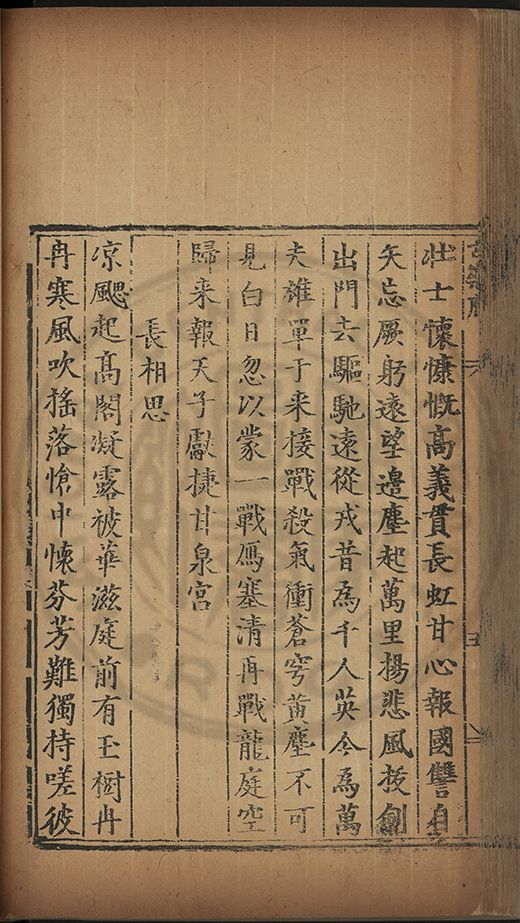 壯士懷慷慨高義貫長虹甘心報國讐自
矢忘厥躬遠望邉塵起萬里揚悲風拔劒
出門去驅馳遠從戎昔為千人英今為萬
夫雄單于来接戰殺氣衝蒼穹黄塵不可
見白日忽以蒙一戰鴈塞清再戰龍庭空
歸来報天子獻捷甘泉宫
長相思
凉颸起髙閣凝露被華滋庭前有玉樹冉
冉寒風吹揺落愴中懷芬芳難獨持嗟彼